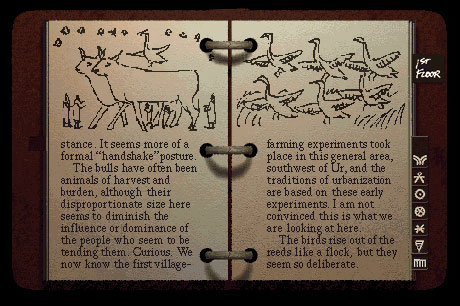 stance. It seems more of a
formal "handshake" posture.
The bulls have often been
animals of harvest and
burden, although their
disproportionate size here
seems to diminish the
influence or dominance of
the people who seem to be
tending them. Curious. We
now know the first village-
farming experiments took
place in this general area,
southwest of Ur, and the
traditions of urbanization
are based on these early
experiments. I am not
convinced this is what we
are looking at here.
The birds rise out of the
reeds like a flock, but they
seem so deliberate.
1ST
FLOOR